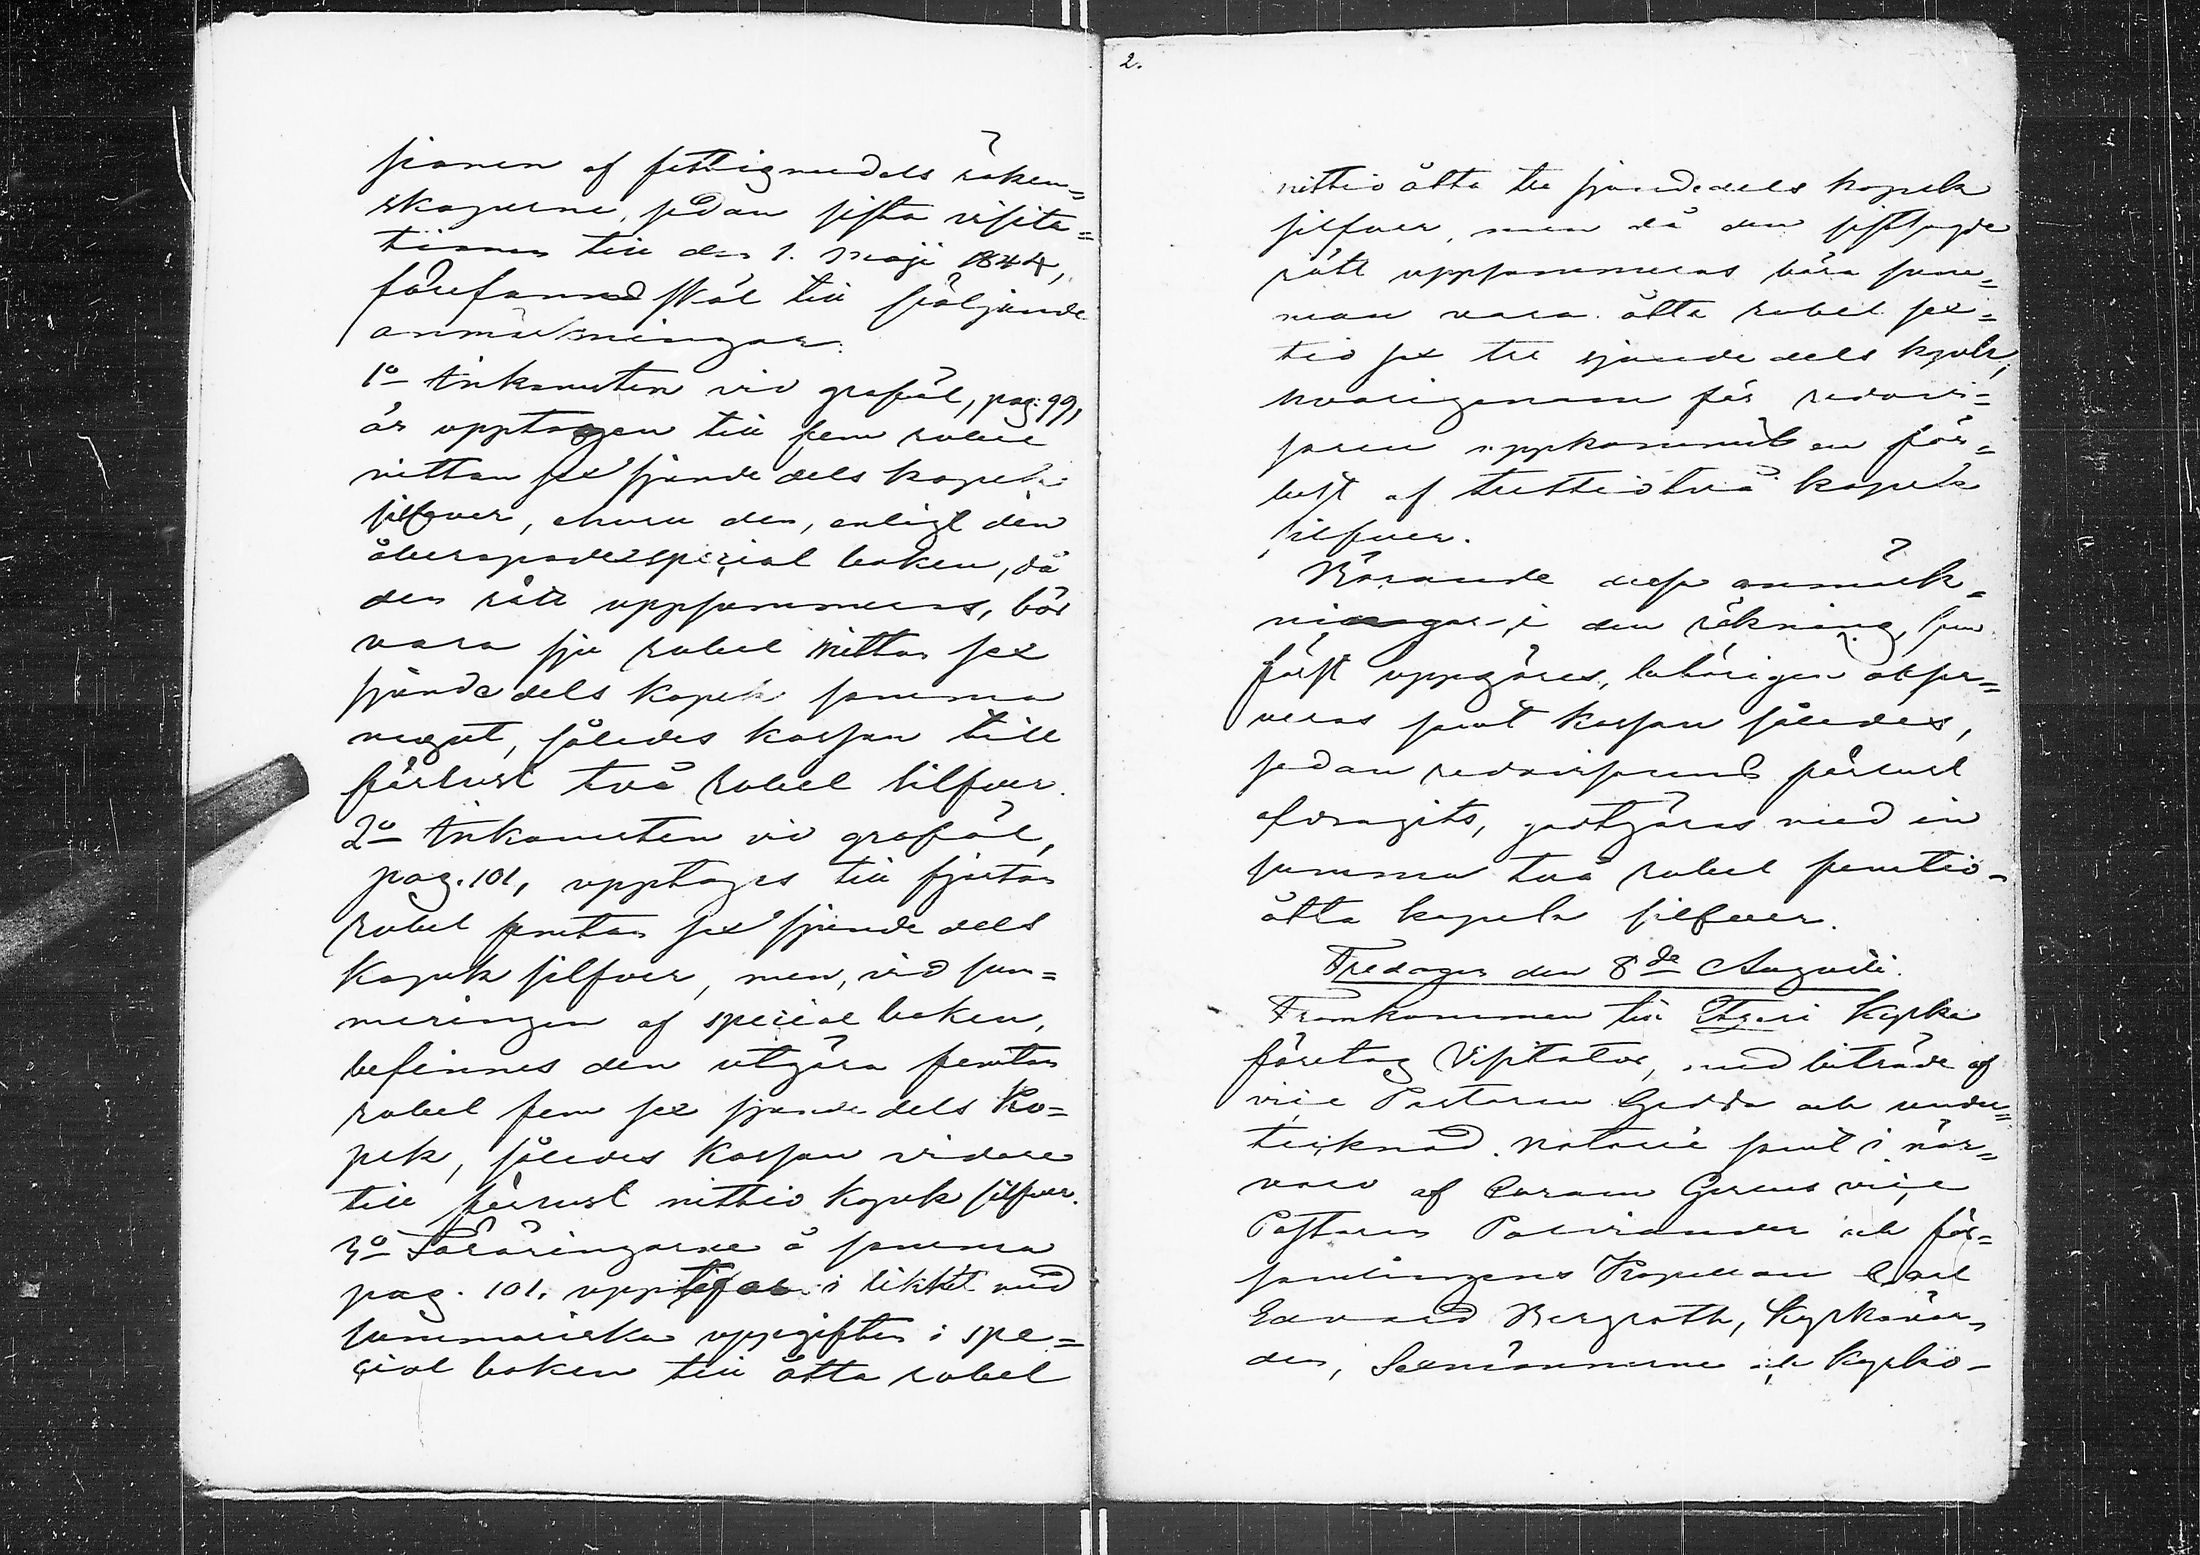 sionen af fattigmedels räken=
skaperne, sedan sista visita=
tionen till den 1. Maji 1844,
förefanns skäl till följande
anmärkningar:
1o Inkomsten vid graföl, pag: 99,
är upptagen till fem rubel
nitton sex sjunde dels kopek
silfver, ehuru den, enligt den
åberopade special boken, då
den rätt uppsummeras, bör
vara sju rubel nitton sex
sjunde dels kopek samma
mynt, således kassan till
förlust två rubel silfver.
2o Inkomsten vid graföl,
pag. 101, upptages till fjorton
rubel femton sex sjunde dels
kopek silfver, men, vid sum=
meringen af special boken,
befinnes den utgöra femton
rubel fem sex sjunde dels ko=
pek, således kassan vidare
till förlust nittio kopek silfver.
3o Saköringarne å samma
pag. 101. upptagas i likhet med
summariska uppgiften i spe=
cial boken till åtta rubel
2.
nittio åtta tre sjundedels kopek
silfver, men då den sistsagde
rätt uppsummeras bör sum=
man vara åtta rubel sex=
tio sex tre sjunde dels kopek,
hvarigenom för redovi=
saren uppkommit en för=
lust af trettiotvå kopek
silfver.
Börande dessa anmärk=
ningar i den räkning, som
först uppgöres, behörigen obser=
veras samt kassan således,
sedan redovisarens förlust
afdragits, godtgöras med en
summa två rubel femtio=
åtta kopek silfver.
Fredagen den 8de Augusti.
Framkommen till kyrka
företog Visitator, med biträde af
vice Pastoren Gedda och under=
tecknad Notarie samt i när=
varo af Curam Gerens vice
Pastoren och för=
samlingens Kapellan Carl
Edvard Bergroth, Kyrkovär=
den, Sexmännerne och Kyrko=